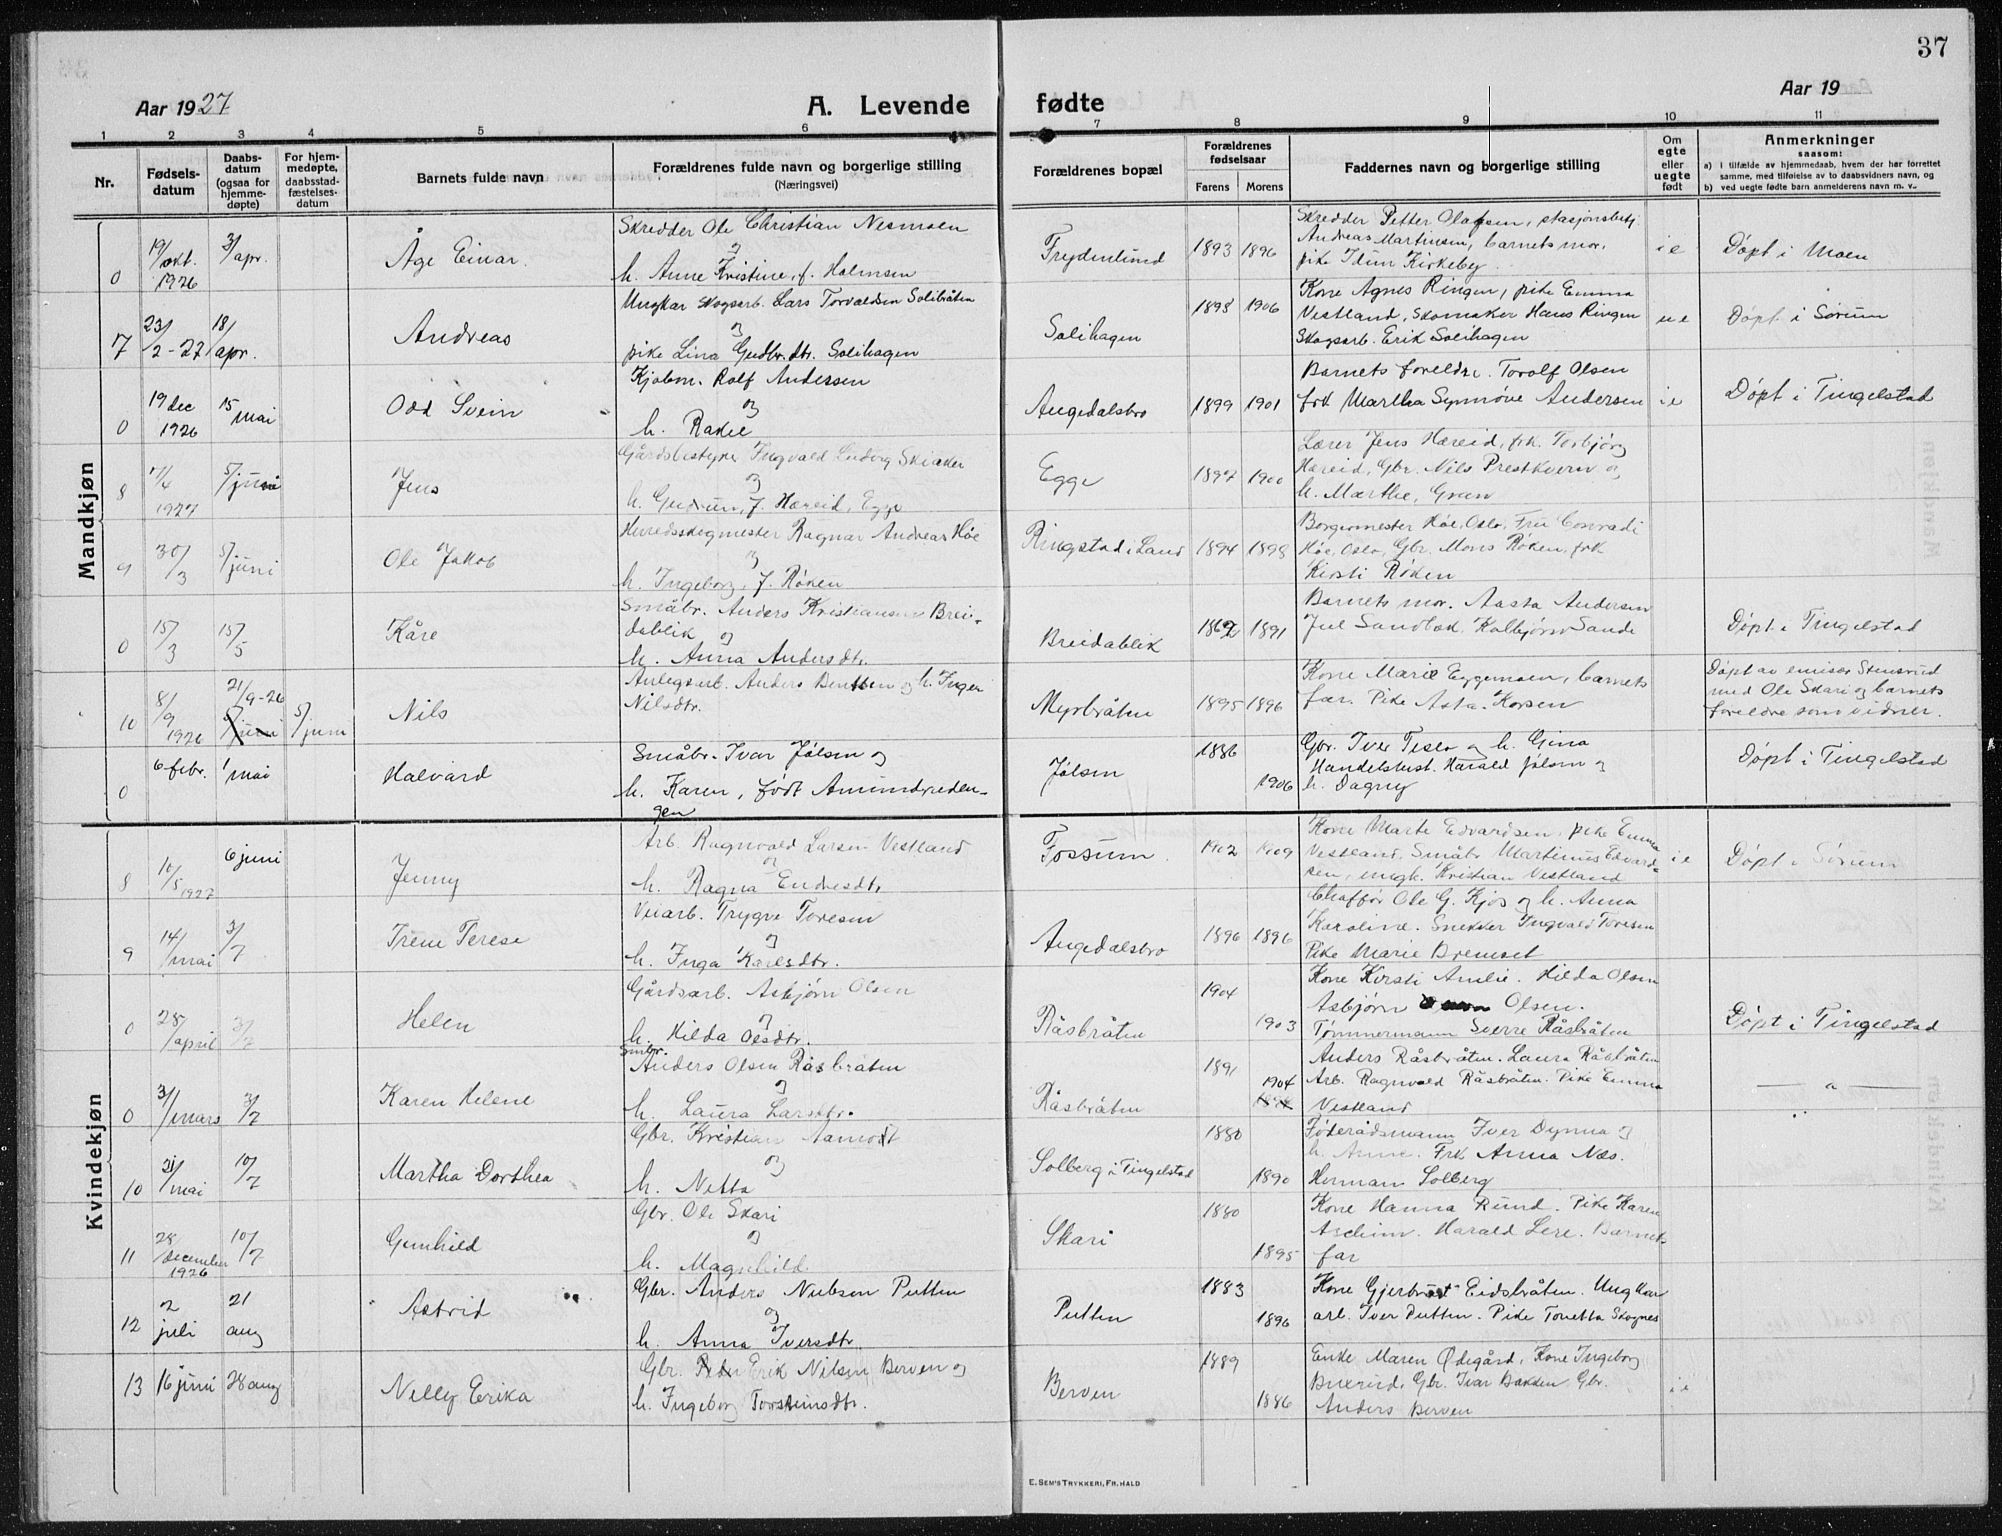 37
Aar 1927
A. Levende fødte
Aar 19
1 2 3 4 5 6 7 8 9 10 11
Nr.
Fødsels-
datum
Daabs-
datum
(ogsaa for
hjemme-
døpte)
For hjem-
medøpte,
daabsstad-
fæstelses-
datum
Barnets fulde navn
Forældrenes fulde navn og borgerlige stilling
(Næringsvei)
Forældrenes bopæl
Forældrenes
fødselsaar
Farens Morens
Faddernes navn og borgerlige stilling
Om
egte
eller
uegte
født
Anmerkninger
saasom:
a) i tilfælde av hjemmedaab, hvem der har forrettet
samme, med tilføielse av to daabsvidners navn, og
b) ved uegte fødte barn anmelderens navn m. v.
Mandkjøn
0
19/okt.
1926
3/apr.
Åge Einar
Skredder Ole Christian Nesmoen
og
h. Anne Kristine, f. Holmsen
Frydenlund
1893 1896
Skredder Petter Olafsen, stasjonsbetj.
Andreas Martinsen, barnets mor,
pike Idun Kirkeby
i e
Døpt i Moen
7
23/2-27
18/apr.
Andreas
Ungkar skogsarb. Lars Torvaldsen Solibråten
og
pike Lina Gudbr.dtr. Solihagen
Solihagen
1898 1906
Kone Agnes Ringen, pike Emma
Vestland, Skomaker Hans Ringen
Skogsarb. Erik Solihagen
u e
Døpt i Sørum
0
19 dec
1926
15 mai
Odd Svein
Kjøbm. Rolf Andersen
og
h. Rakel
Augedalsbro
1899 1901
Barnets foreldre. Torolf Olsen
frk Martha Synnøve Andersen
i e
Døpt i Tingelstad
8
7/4
1927
5/juni
Jens
Gårdsbestyrer Ingvald Ludvig Skiaker
og
h. Gudrun, f. Hæreid, Egge
Egge
1897 1900
Lærer Jens Hæreid, frk. Torbjørg
Hæreid, Gbr. Nils Prestkvern og
h. Marthe, Gran
9
30/3
5/juni
Ole Jakob
Herredsskogmester Ragnar Andreas Høe
og
h. Ingeborg, f. Røken
Ringstad i Land
1894 1898
Borgermester Høe, Oslo, Fru Conradi
Høe, Oslo, Gbr. Mons Røken, frk
Kirsti Røken
0
15/3
15/5
Kåre
Småbr. Anders Kristiansen Brei-
dablik
og
h. Anna Andersdtr.
Breidablik
1891
Barnets mor. Aasta Andersen
Juel Sandbak. Kolbjørn Sande
Døpt i Tingelstad
10
8/9
1926
21/9-26
5/juni
5/juni
Nils
Anlegsarb. Anders Bentsen og h. Inger
Nilsdtr.
Myrbråten
1895 1896
Kone Marie Eggemoen, barnets
far. Pike Asta Korsen
Døpt av emisær Stensrud
med Ole Skari og barnets
foreldre som vidner.
0
6 febr.
1 mai
Halvard
Småbr. Ivar Jølsen og
h. Karen, født Amundrøden-
gen
Jølsen
1886
1906
Gbr. Iver Teslo og h. Gina
Handelsbest. Harald Jølsen og
h. Dagny
Døpt i Tingelstad
Kvindekjøn
8
10/5 1927
6 juni
Jenny
Arb. Ragnvald Larsen Vestland
og
h. Ragna Endresdtr.
Fossum
1902 1909
Kone Marte Edvardsen, pike Emma
Vestland, Småbr Martinus Edvard-
sen, ungk. Kristian Vestland
i e
Døpt i Sørum
9
14/mai
3/7
Irene Terese
Veiarb. Trygve Toresen
og
h. Inga Karlsdtr.
Augedalsbro
1896 1896
Chaffør Ole G. Kjos og h. Anna
Karoline. Snekker Ingvald Toresen
Pike Marie Bremset
0
28/april
3/7
Helen
Gårdsarb. Asbjørn Olsen
og
h. Hilda Olsdtr.
Råsbråten
1904
1903
Kone Kirsti Amlie. Hilda Olsen
Asbjørn Olsen.
Tømmermann Sverre Råsbråten
Døpt i Tingelstad
0
31/mars
3/7
Karen Helene
Småbr.
Anders Olsen Råsbråten
og
h. Laura Larsdtr.
Råsbråten
1891
1904
Anders Råsbråten. Laura Råsbråten
Arb. Ragnvald Råsbråten. Pike Emma
Vestland
— " —
10
21/mai
10/7
Martha Dorthea
Gbr. Kristian Aamodt
og
h. Netta
Solberg i Tingelstad
1880
1890
Føderådsmann Iver Dynna og
h. Anne. Frk Anna Næs.
Herman Solberg
11
28/december
1926
10/7
Gunhild
Gbr. Ole Skari
og
h. Magnhild
Skari
1880
1895
Kone Hanna Rund. Pike Karen
Aschim. Harald Lere. Barnets
far
12
2
juli
21
aug
Astrid
Gbr. Anders Nielsen Putten
og
h. Anna Iversdtr.
Putten
1883
1896
Kone Gjertrud Eidsbråten. Ungkar
arb. Iver Putten. Pike Tonetta Skognes
13
16 juni
28 aug
Nelly Erika
Gbr. Peder Erik Nilsen Berven og
h. Ingeborg Torsteinsdtr.
Berven
1889
1886
Enke Maren Ødegård, Kone Ingeborg
Buerud, Gbr. Ivar Bakken Gbr.
Anders Berven
i e
E. SEM'S TRYKKERI, FR.HALD